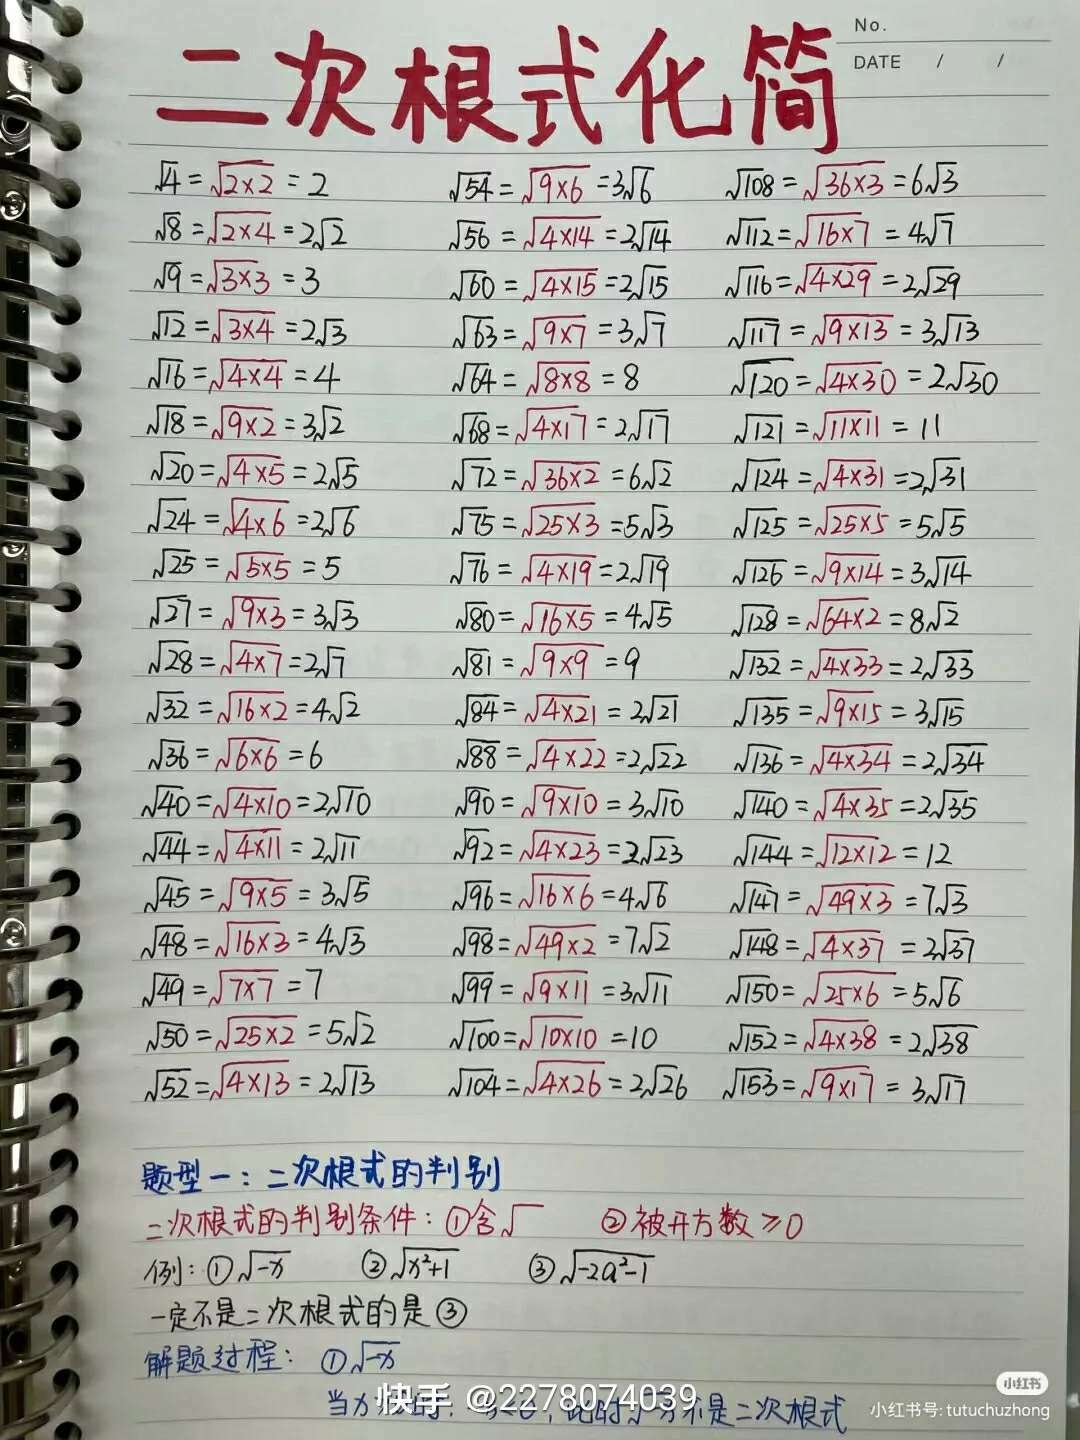 No.
DATE / /
二次根式化简
√4 = √2×2 = 2
√8 = √2×4 = 2√2
√9 = √3×3 = 3
√12 = √3×4 = 2√3
√16 = √4×4 = 4
√18 = √9×2 = 3√2
√20 = √4×5 = 2√5
√24 = √4×6 = 2√6
√25 = √5×5 = 5
√27 = √9×3 = 3√3
√28 = √4×7 = 2√7
√32 = √16×2 = 4√2
√36 = √6×6 = 6
√40 = √4×10 = 2√10
√44 = √4×11 = 2√11
√45 = √9×5 = 3√5
√48 = √16×3 = 4√3
√49 = √7×7 = 7
√50 = √25×2 = 5√2
√52 = √4×13 = 2√13
√54 = √9×6 = 3√6
√56 = √4×14 = 2√14
√60 = √4×15 = 2√15
√63 = √9×7 = 3√7
√64 = √8×8 = 8
√68 = √4×17 = 2√17
√72 = √36×2 = 6√2
√75 = √25×3 = 5√3
√76 = √4×19 = 2√19
√80 = √16×5 = 4√5
√81 = √9×9 = 9
√84 = √4×21 = 2√21
√88 = √4×22 = 2√22
√90 = √9×10 = 3√10
√92 = √4×23 = 2√23
√96 = √16×6 = 4√6
√98 = √49×2 = 7√2
√99 = √9×11 = 3√11
√100 = √10×10 = 10
√104 = √4×26 = 2√26
√108 = √36×3 = 6√3
√112 = √16×7 = 4√7
√116 = √4×29 = 2√29
√117 = √9×13 = 3√13
√120 = √4×30 = 2√30
√121 = √11×11 = 11
√124 = √4×31 = 2√31
√125 = √25×5 = 5√5
√126 = √9×14 = 3√14
√128 = √64×2 = 8√2
√132 = √4×33 = 2√33
√135 = √9×15 = 3√15
√136 = √4×34 = 2√34
√140 = √4×35 = 2√35
√144 = √12×12 = 12
√147 = √49×3 = 7√3
√148 = √4×37 = 2√37
√150 = √25×6 = 5√6
√152 = √4×38 = 2√38
√153 = √9×17 = 3√17
题型一：二次根式的判别
二次根式的判别条件：①含√ ②被开方数≥0
例：①√-x ②√x²+1 ③√-2a²-1
一定不是二次根式的是③
解题过程：①√-x
当x 时， 此时√-x不是二次根式
快手 @2278074039
小红书
小红书号: tutuchuzhong